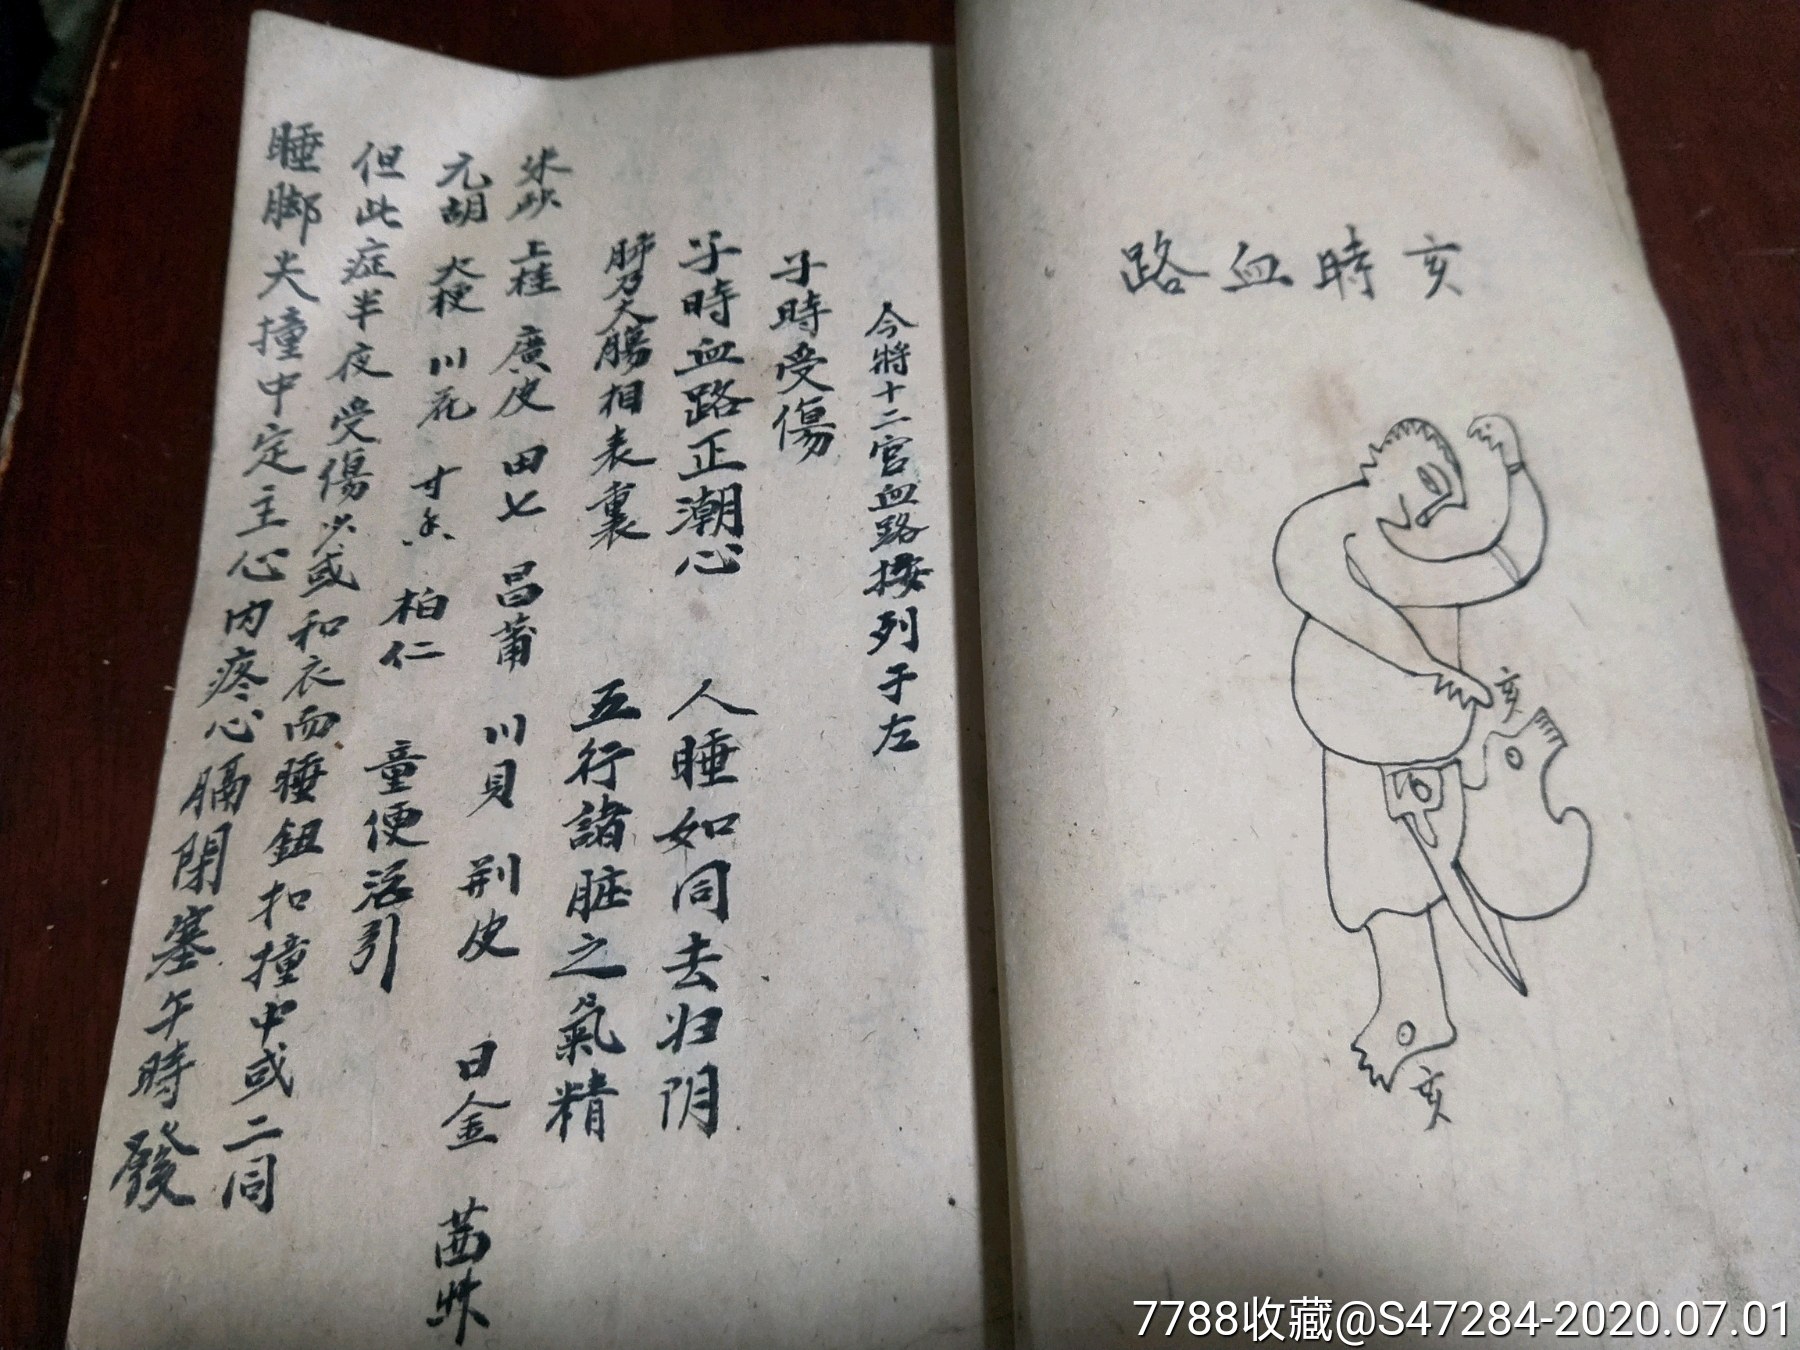 亥時血路
亥
亥
今將十二宫血路按列于左
子時受傷
子時血路正潮心 人睡如同去归阴
肺乃大腸相表裏 五行諸脏之氣精
朱砂 上桂 廣皮 田七 昌莆 川貝 荆皮 日金 茜草
元胡 大梗 川花 寸香 柏仁 童便酒引
但此症半夜受傷少或和衣而睡鈕扣撞中或二同
睡脚尖撞中定主心内疼心膈閉塞午時發
7788收藏@S47284-2020.07.01